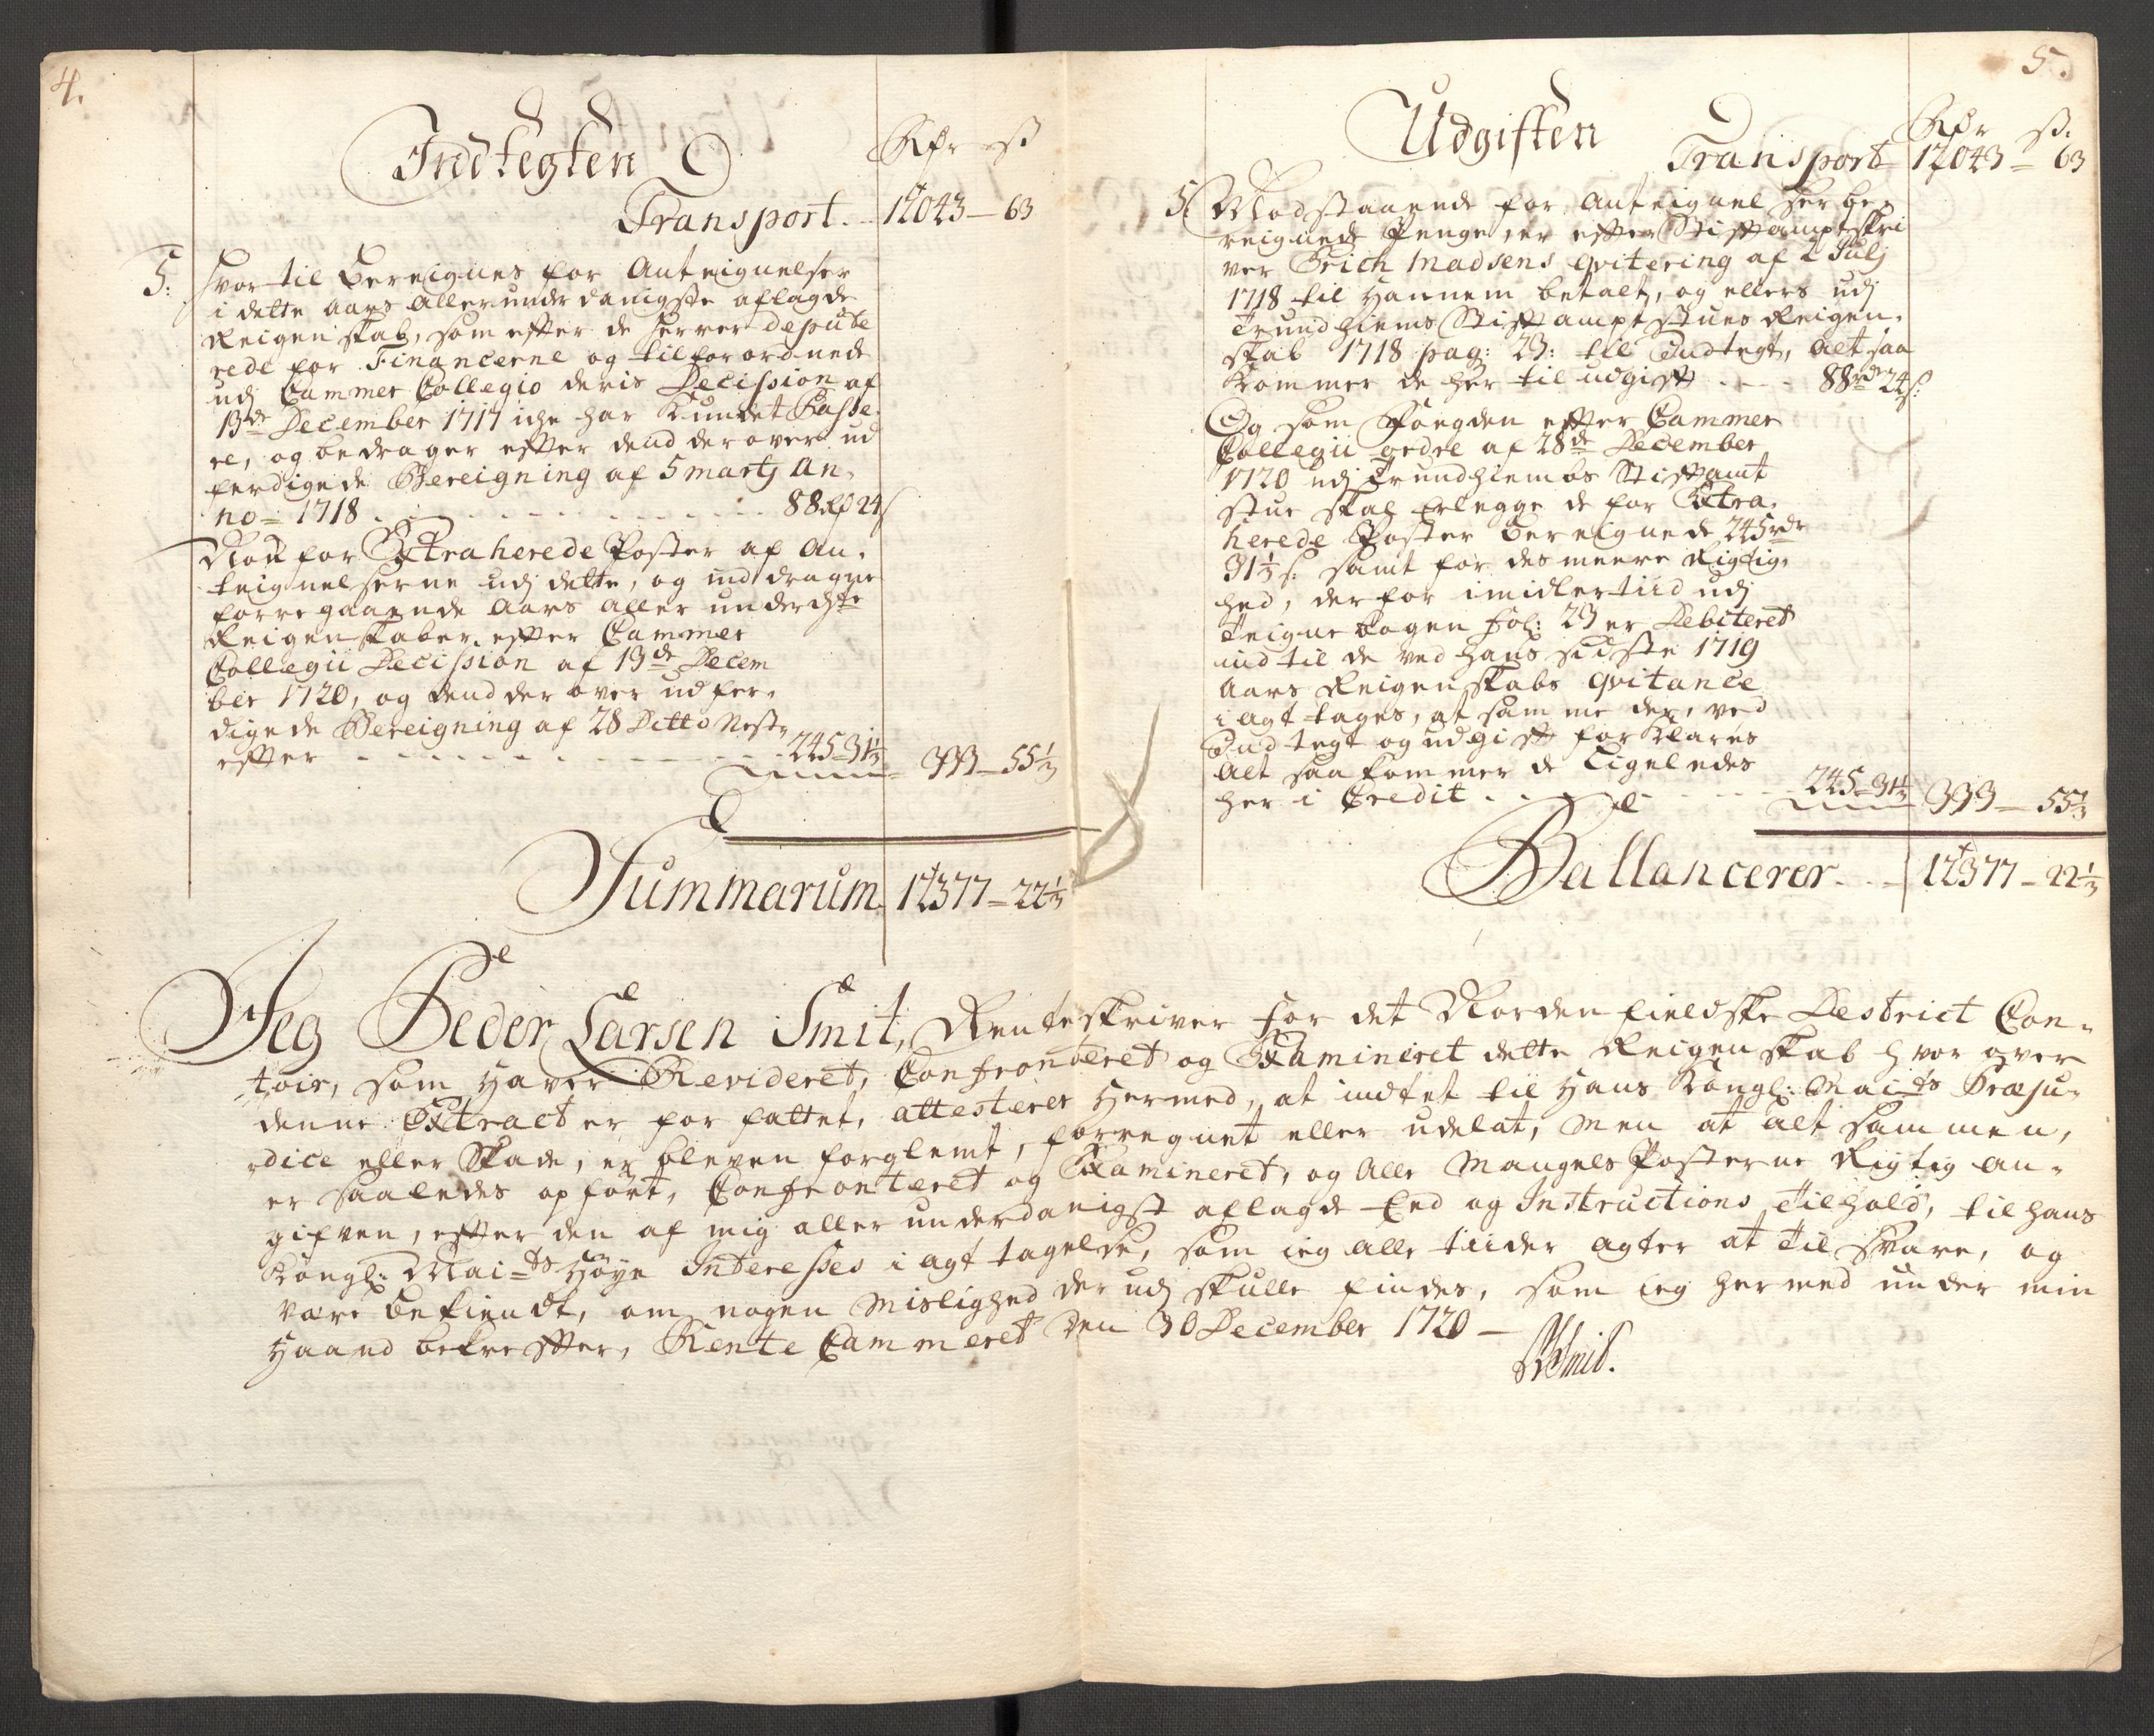 4.
Indtegten
Rdr ß
Transport. 12043 — 63
5: Hvortil bereignes for Anteignelser
i dette aars allerunderdanigste aflagde
Reigenskab, som efter de herrer depute
rede for Financerne og tilforordnede
udj Cammer Collegio deris Decission af
13de December 1717 icke har kundet Passe-
re, og bedrager efter dend derover ud
ferdigede Bereigning af 5 martj An-
no 1718 . . . 88 rdr 24 ß
Nok for Extraherede Poster af An-
teignelserne udj dette, og inddragne
forregaaende Aars aller underdste
Reigenskaber, efter Cammer
Collegii Decission af 13de Decem
ber 1720, og dend derover udfer-
digede Bereigning af 28 Ditto Nest-
efter . . . 245 - 31 1/3 333 — 55 1/3
Summarum 12377 - 22 1/3
5.
Udgiften
Rdr ß.
Transport 12043 - 63
5. Modstaaende for Anteignelser be-
reignede Penge, er efter Stiftamptskri
ver Erich Madsens qvitering af 2 Julj
1718 til hannem betalt, og ellers udj
Trundhiems Stiftamptstues Reigen-
skab 1718 pag: 23: til Indtegt, alt saa
kommer de her til udgift . . . 88 rdr 24 ß:
Og som Fogden efter Cammer
Collegii ordre af 28de December
1720 udj Trundhiembs Stiftamt
stue skal Erlegge de for Extra-
herede Poster bereignede 245 rdr
31 1/3 ß. samt for des meere Rigtig-
hed, der for imidlertiid udj
Teigne bogen fol: 23 er Debiteret
indtil de ved hans sidste 1719
Aars Reigenskabs qvitance
i agt tages, at samme der, ved
Indtegt og udgift forklares
Alt saa kommer de Ligeledes
her i Credit . . . 245 - 31 1/3 333 — 55 1/3
Ballancerer . . . 12377 - 22 1/3
Jeg Peder Larsen Smit, Renteskriver for det Nordenfieldske Destrict Con-
toir, som haver Revideret, Confronteret og Examineret dette Reigenskab hvor over
denne Extract er forfattet, attesterer hermed, at intet til Hans Kongl: Maits Præju-
dice eller Skade, er bleven forglemt, forregnet eller udelat, men at alt sammen,
er saaledes opført, Confronteret og Examineret, og Alle Mangels Posterne Rigtig an-
gifven, efter den af mig aller underdanigst aflagde Eed og Instructions Tilhold, til hans
Kongl: Maits Høye Interesses i agt tagelse, som ieg alle tiider agter at Til svare, og
være bekiendt, om nogen Mislighed derudj skulle findes, som ieg hermed under min
Haand bekrefter, Rente Cammeret den 30 December 1720 —
PLSmit.